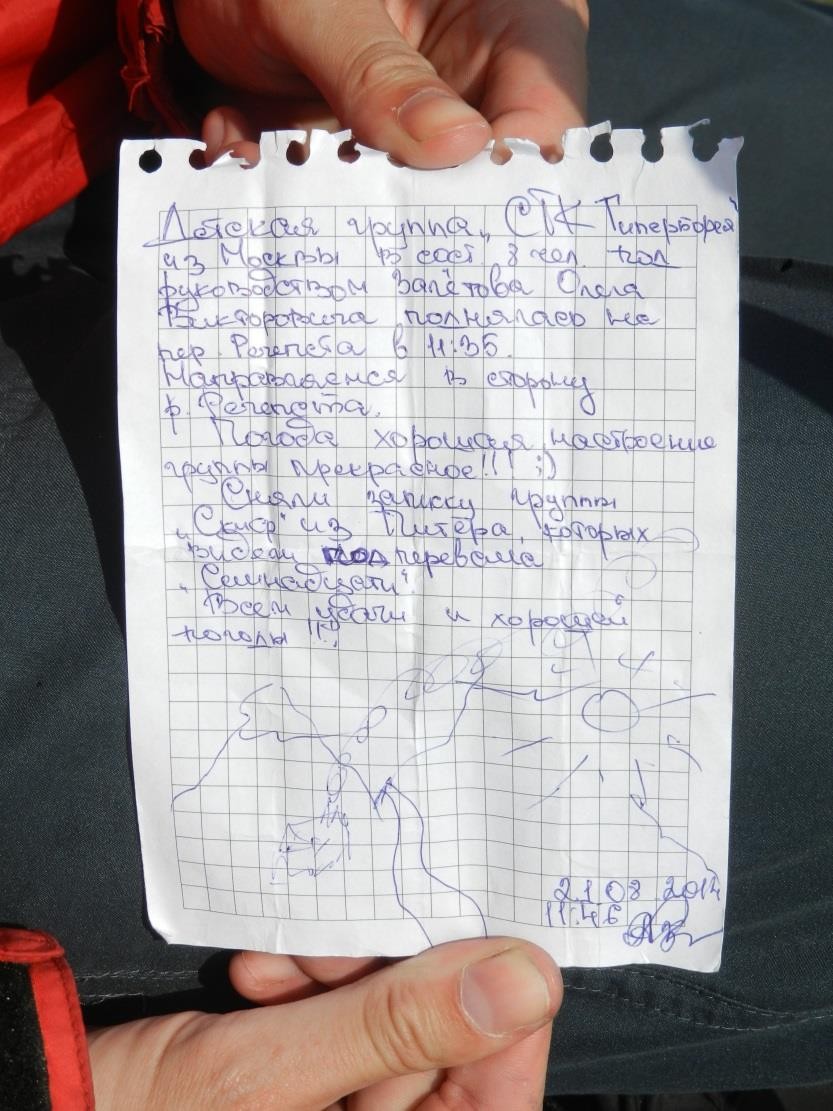 Детская группа „СТК Гиперборея"
из Москвы в сост. 8 чел. под
руководством Залётова Олега
Викторовича поднялась на
пер. Речепста в 11:35.
Направляемся в сторону
р. Речепста.
Погода хорошая, настроение
группы прекрасное!!! ;)
Сняли записку группы
„Скиф" из Питера, которых
видели под перевала
„Семнадцати".
Всем удачи и хорошей
погоды!!!
21 08 2014
11:46